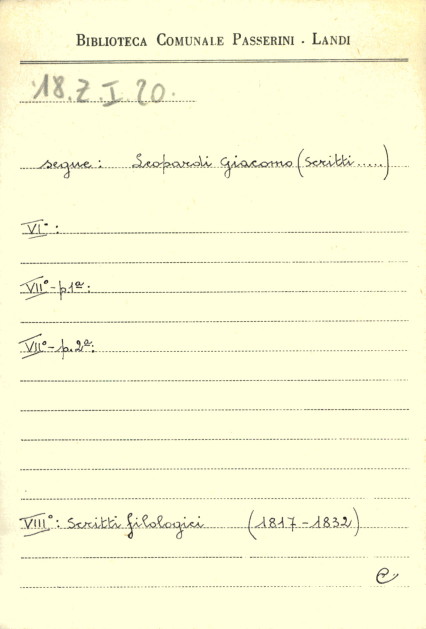 BIBLIOTECA COMUNALE PASSERINI - LANDI
18.Z.I.20.
segue: Leopardi Giacomo (Scritti.....)
VI°:
VII°- p.1ª:
VII°- p.2ª:
VIII°: Scritti filologici (1817-1832)